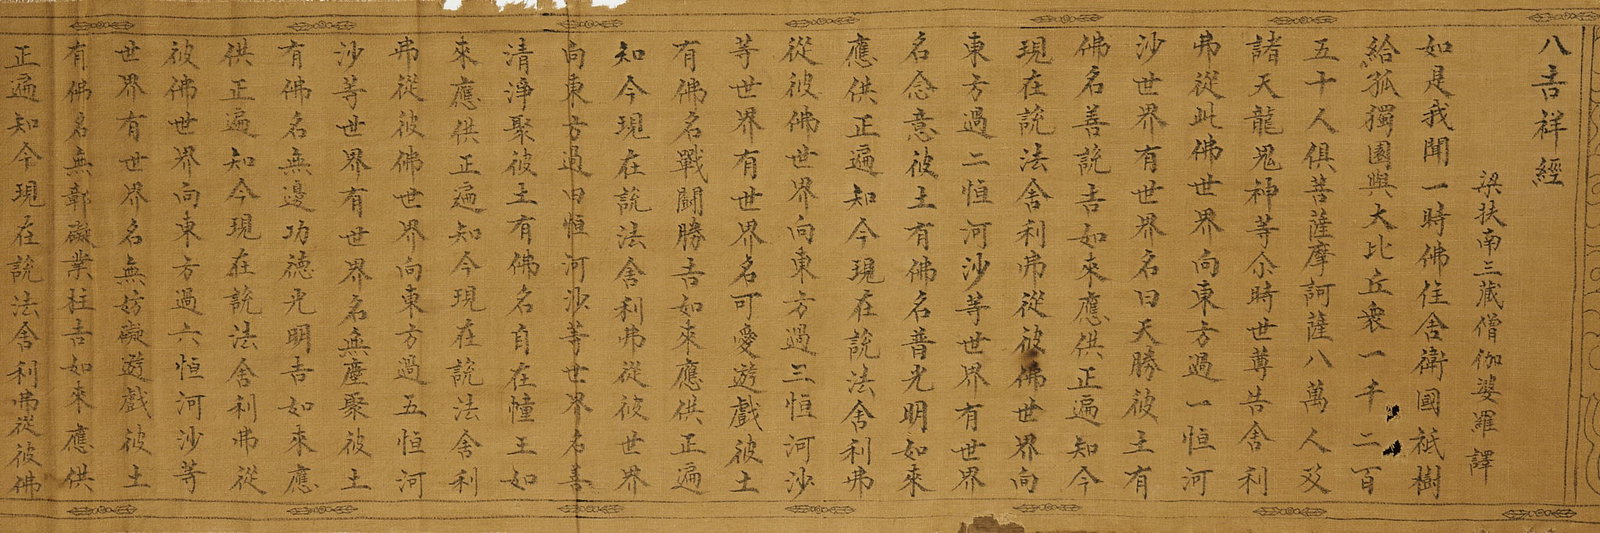 八吉祥經
梁扶南三藏僧伽婆羅譯
如是我聞一時佛住舍衛國祇樹
給孤獨園與大比丘衆一千二百
五十人俱菩薩摩訶薩八萬人及
諸天龍鬼神等尒時世尊告舍利
弗從此佛世界向東方過一恒河
沙世界有世界名曰天勝彼土有
佛名善說吉如來應供正遍知今
現在說法舍利弗從彼佛世界向
東方過二恒河沙等世界有世界
名念意彼土有佛名普光明如來
應供正遍知今現在說法舍利弗
從彼佛世界向東方過三恒河沙
等世界有世界名可愛遊戲彼土
有佛名戰鬪勝吉如來應供正遍
知今現在說法舍利弗從彼世界
向東方過四恒河沙等世界名善
清淨聚彼土有佛名自在幢王如
來應供正遍知今現在說法舍利
弗從彼佛世界向東方過五恒河
沙等世界有世界名無塵聚彼土
有佛名無邊功德光明吉如來應
供正遍知今現在說法舍利弗從
彼佛世界向東方過六恒河沙等
世界有世界名無妨礙遊戲彼土
有佛名無鄣礙業柱吉如來應供
正遍知今現在說法舍利弗從彼佛